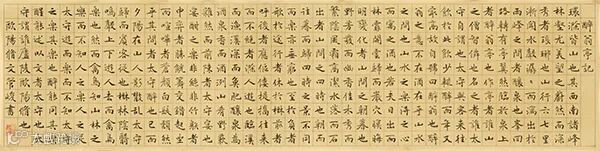 醉翁亭記
環滁皆山也其西南諸峰
林壑尤美望之蔚然而深
秀者琅琊也山行六七里
漸聞水聲潺潺而瀉出於兩
峰之間者釀泉也峰回
路轉有亭翼然臨於泉
上者醉翁亭也作亭者誰山
之僧智僊也名之者誰太
守自謂也太守與客來
飲於此飲少輒醉而年又
最高故自號曰醉翁也醉翁
之意不在酒在乎山水
之間也山水之樂得之心
而寓之酒也若夫日出而
林霏開雲歸而巖穴暝晦
明變化者山間之朝暮也
野芳發而幽香佳木秀而
繁陰風霜高潔水落而石
出者山間之四時也朝而
往暮而歸四時之景不同
而樂亦無窮也至於負者
歌於途行者休於樹前者
呼後者應傴僂提攜往來
而不絕者滁人遊也臨溪
而漁溪深而魚肥釀泉為
酒泉香而酒洌山肴野蔌
雜然而前陳者太守宴也
宴酣之樂非絲非竹射者
中弈者勝觥籌交錯起坐
而諠譁者眾賓歡也蒼顏白髮頹然
乎其間者太守醉也已而
夕陽在山人影散亂太守
歸而賓客從也樹林陰翳
鳴聲上下遊人去而禽鳥
樂也然而禽鳥知山林之
樂而不知人之樂人知從
太守遊而樂而不知太守
之樂其樂也醉能同其樂
醒能述以文者太守也太
守謂誰廬陵歐陽脩也
歐陽脩文管峻書